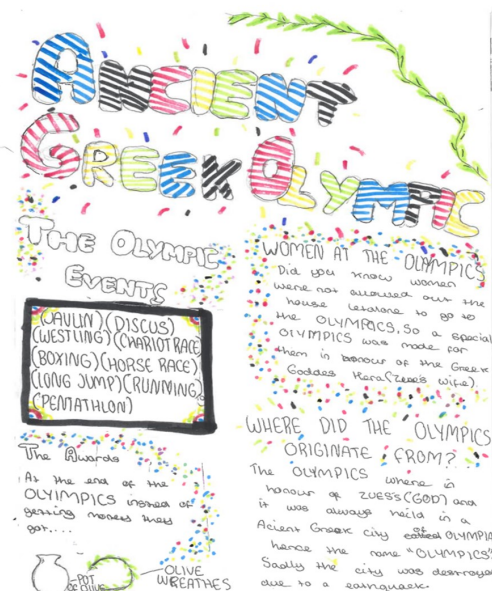 ANCIENT
GREEK OLYMPIC
THE OLYMPIC
EVENTS
(JAVLIN) (DISCUS)
(WESTLING) (CHARIOT RACE)
(BOXING) (HORSE RACE)
(LONG JUMP) (RUNMING)
(PENTATHLON)
The Awards
At the end of the
OLYIMPICS instead of
getting money they
got....
POT
OF OLIVE
OLIVE
WREATHES
WOMEN AT THE OLYMPICS
Did you know women
were not allowed out the
house letalone to go to
the OLYMPICS, So a special
OLYMPICS was made for
them in honour of the Greek
Goddes Hera (Zeus's wife).
WHERE DID THE OLYMPICS
ORIGINATE FROM?
The OLYMPICS where in
honour of ZUES'S (GOD) and
it was always heild in a
Acient Greek city called OLYMPIA
hence the name "OLYMPICS"
Sadly the city was destroyed
due to a earthquack.